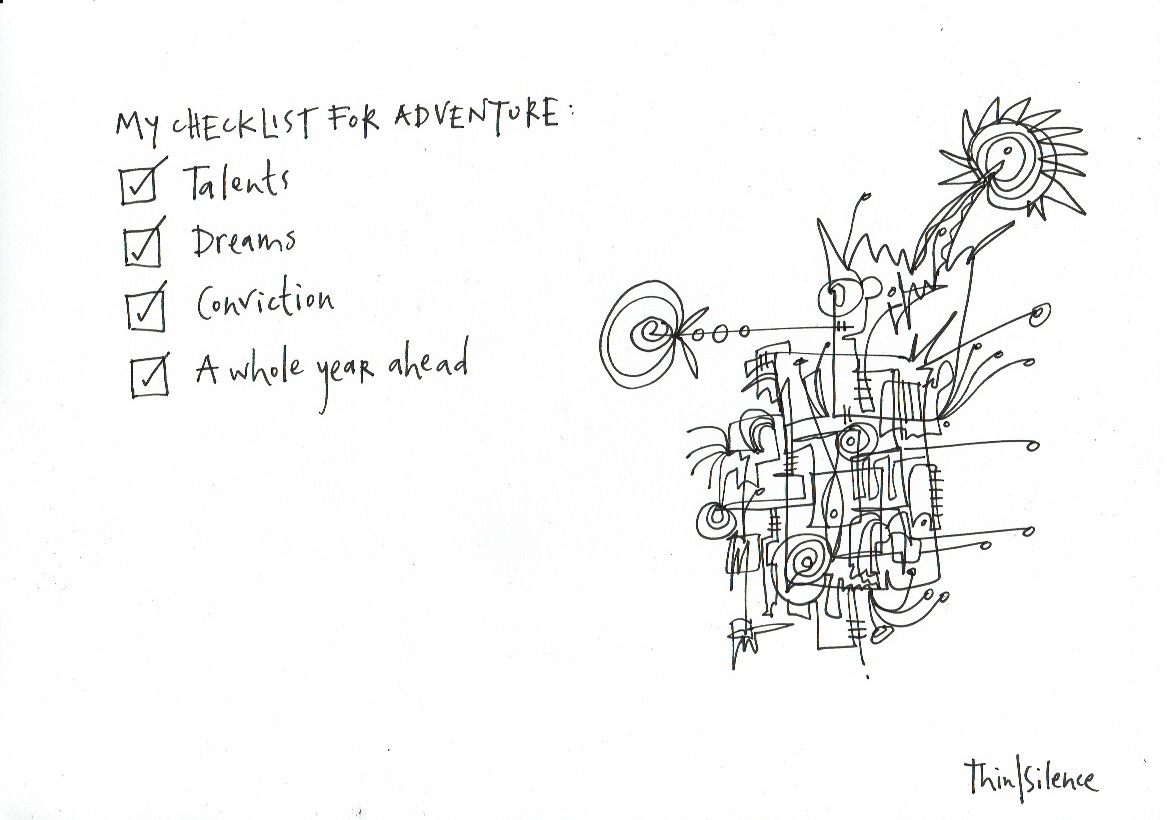 MY CHECKLIST FOR ADVENTURE:
Talents
Dreams
Conviction
A whole year ahead
Thin/Silence